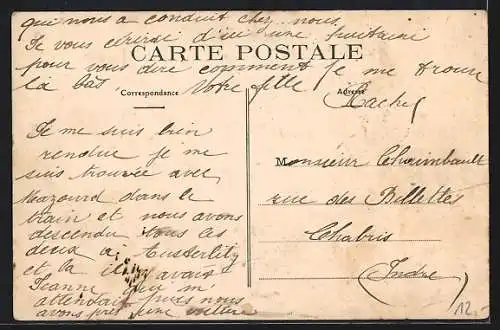 qui nous a conduit chez nous
Je vous écrirai d'ici une
CARTE POSTALE
pour vous dire comment je me trouve
là bas Votre fille
Correspondance
Adresse
Rachel
Je me suis bien
rendue je me
suis trouvée avec
dans le
train et nous avons
descendu tous les
deux a Austerlitz
et la il y avait
Jeanne qui m'
attendait puis nous
avons pris une voiture
Monsieur Chaimbault
rue des Billettes
Chabris
Indre
12